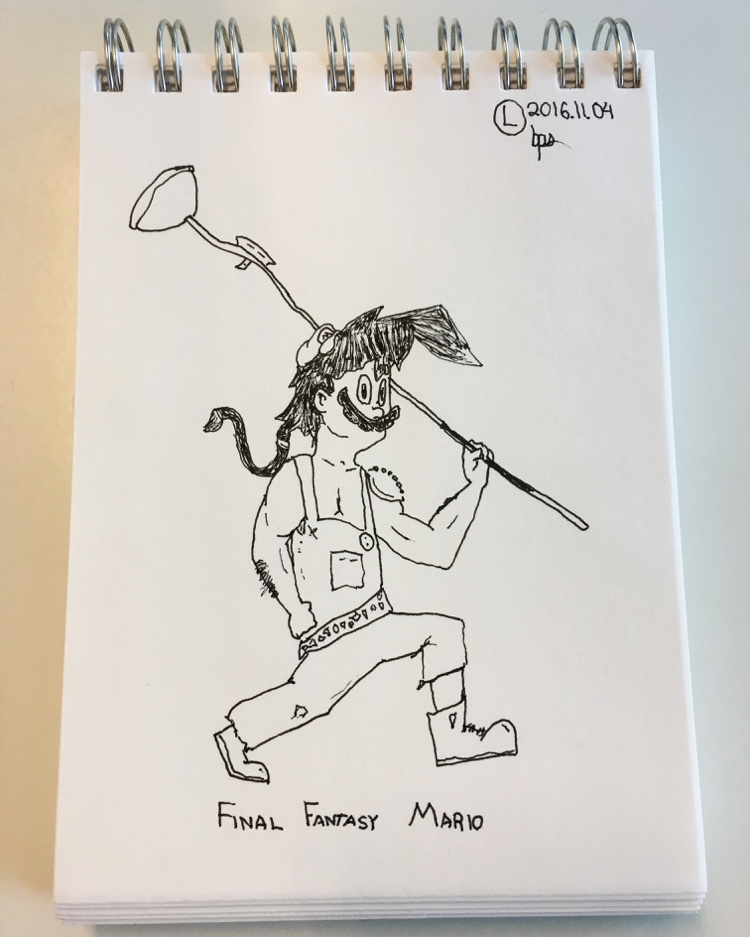 Ⓛ 2016.11.04
bps
FINAL FANTASY MARIO